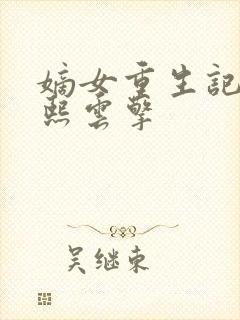 嫡女重生記
熙雲擎
吴继东